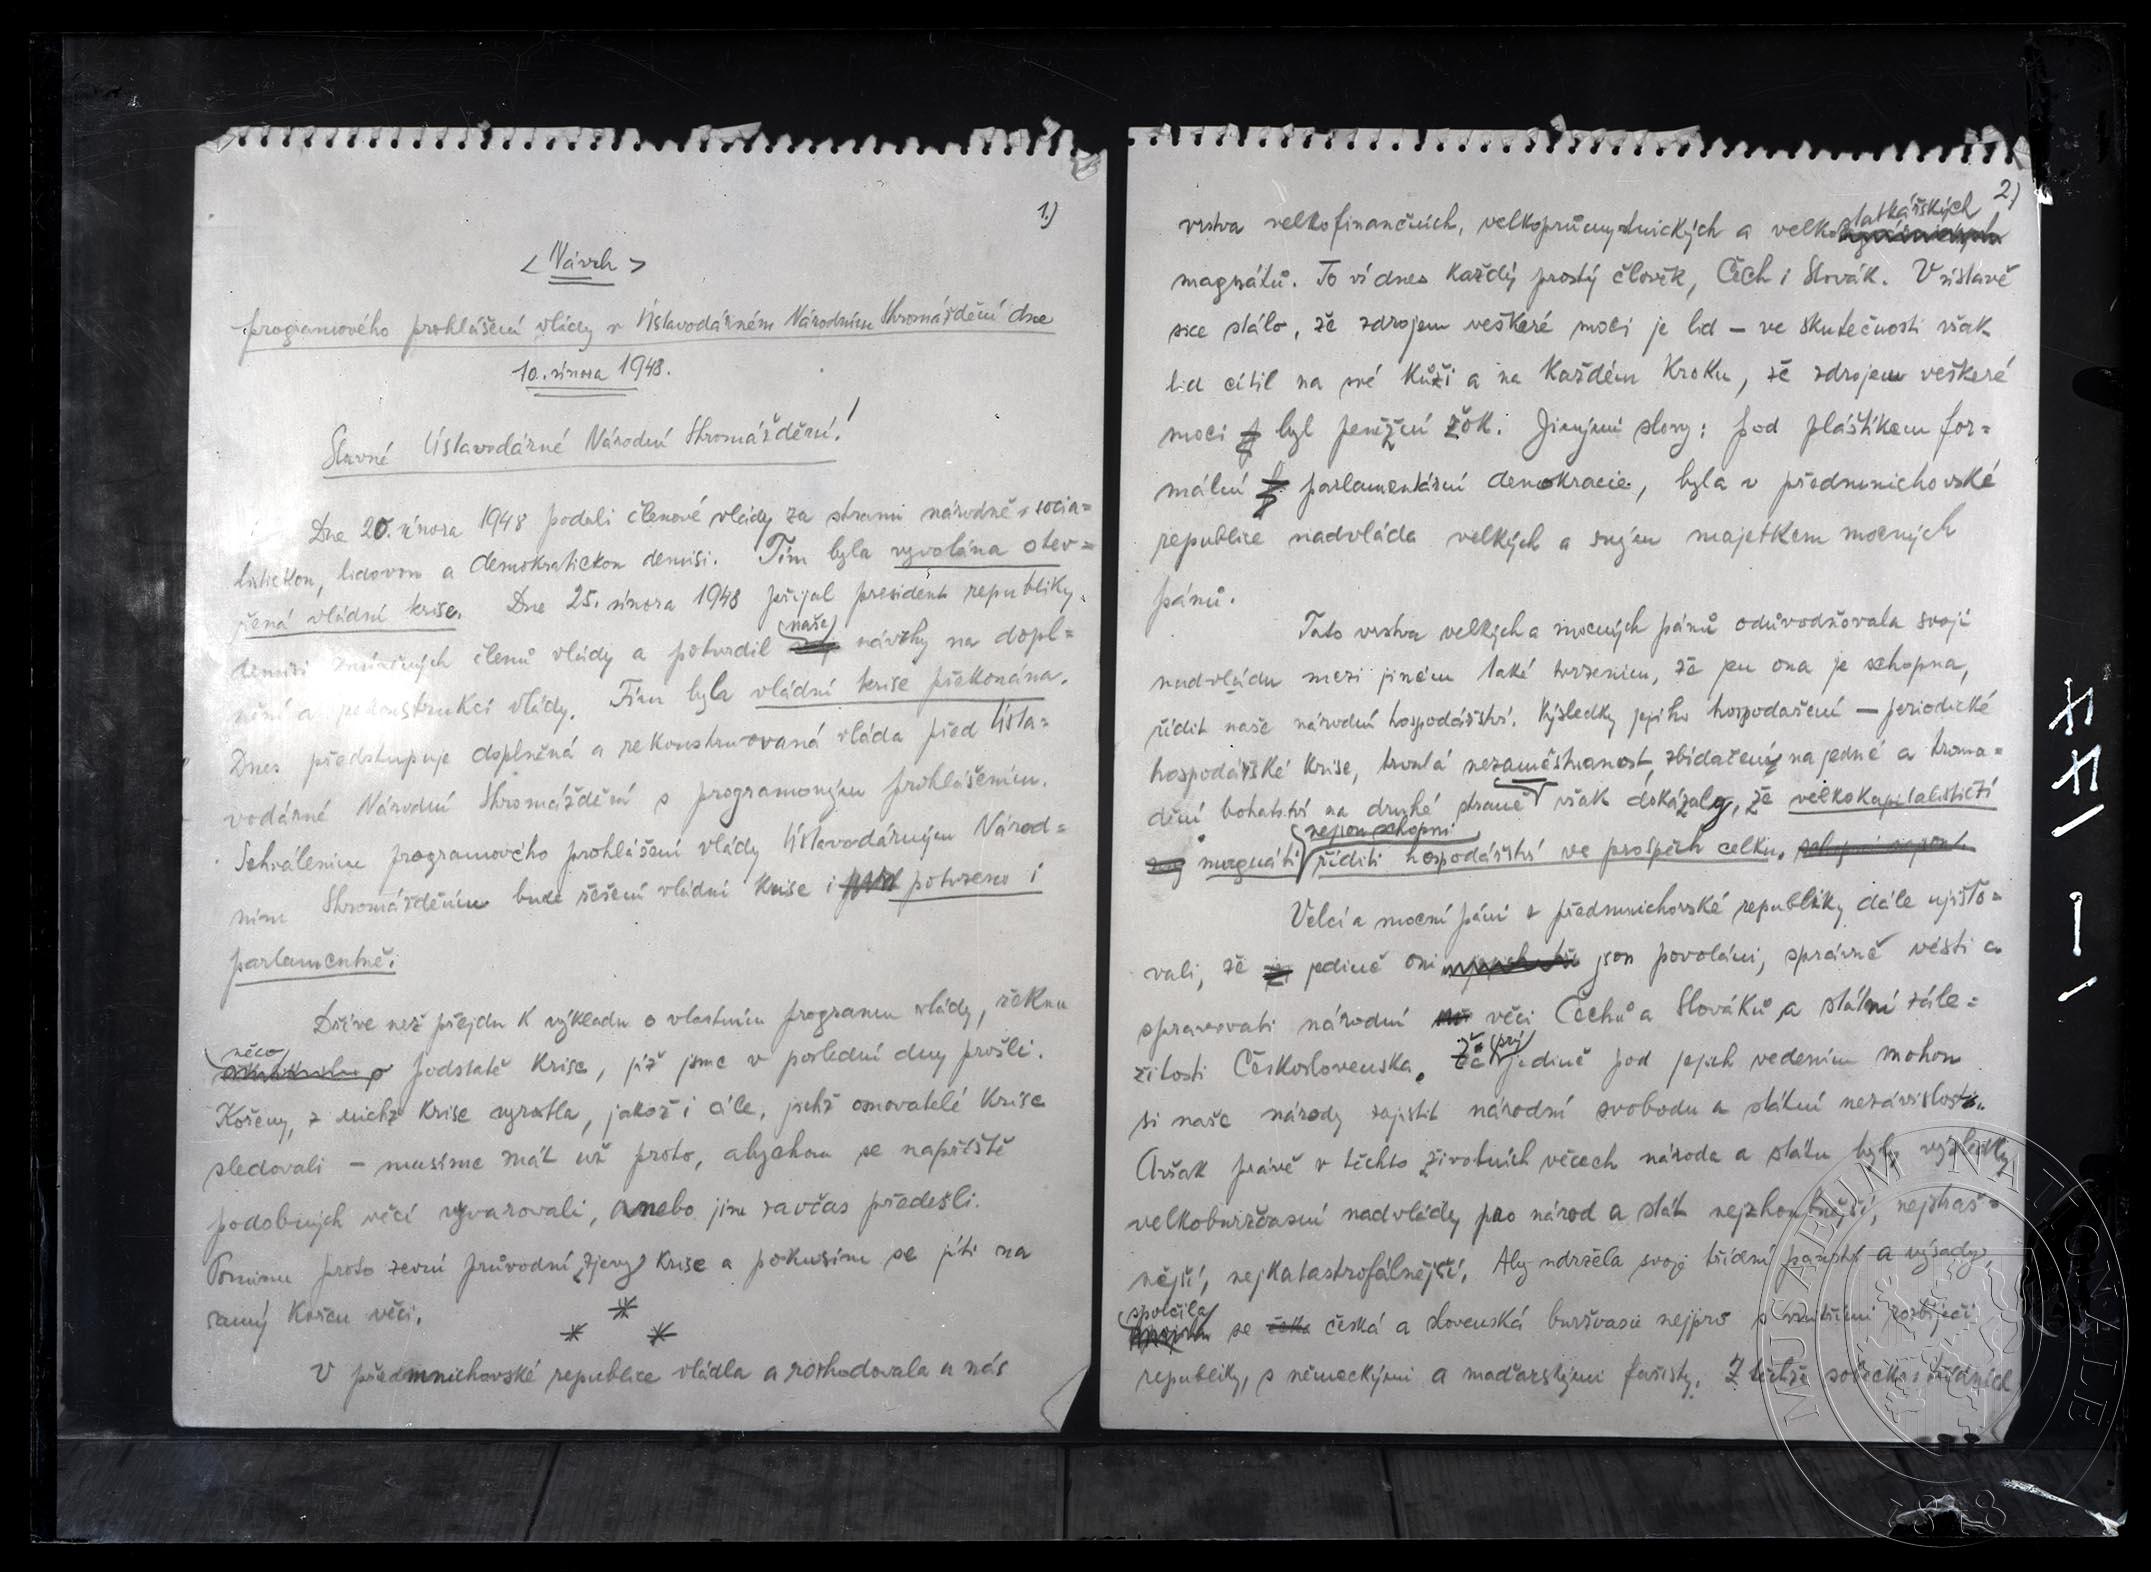 1.)
< Návrh >
programového prohlášení vlády v Ústavodárném Národním Shromáždění dne
10. února 1948.
Slavné Ústavodárné Národní Shromáždění!
Dne 20. února 1948 podali členové vlády za stranu národně socia=
listickou, lidovou a demokratickou demisi. Tím byla vyvolána otev=
řená vládní krise. Dne 25. února 1948 přijal president republiky
demisi členů vlády a potvrdil naše návrhy na dopl=
nění a rekonstrukci vlády. Tím byla vládní krise překonána.
Dnes předstupuje doplněná a rekonstruovaná vláda před Ústa=
vodárné Národní Shromáždění s programovým prohlášením.
Schválením programového prohlášení vlády Ústavodárným Národ=
ním Shromážděním bude řešení vládní krise i potvrzeno i
parlamentně.
Dříve než přejdu k výkladu o vlastním programu vlády, řeknu
něco o podstatě krise, jíž jsme v poslední dny prošli.
Kořeny, z nichž krise vyrostla, jakož i cíle, jichž osnovatelé krise
sledovali – musíme znát už proto, abychom se napříště
podobných věcí vyvarovali, anebo jim zavčas předešli.
Pominu proto zevní průvodní zjevy krise a pokusím se jíti na
samý kořen věci.
*
* *
V předmnichovské republice vládla a rozhodovala u nás
2)
vrstva velkofinančních, velkoprůmyslnických a velkostatkářských
magnátů. To ví dnes každý prostý člověk, Čech i Slovák. V ústavě
sice stálo, že zdrojem veškeré moci je lid – ve skutečnosti však
lid cítil na své kůži a na každém kroku, že zdrojem veškeré
moci byl peněžní žok. Jinými slovy: pod pláštíkem for=
mální parlamentární demokracie, byla v předmnichovské
republice nadvláda velkých a svým majetkem mocných
pánů.
Tato vrstva velkých a mocných pánů odůvodňovala svoji
nadvládu mezi jiném také tvrzením, že jen ona je schopna,
řídit naše národní hospodářství. Výsledky jejího hospodaření – periodické
hospodářské krise, trvalá nezaměstnanost, zbídačení na jedné a hroma=
dění bohatství na druhé straně však dokázaly, že velkokapitalističtí
magnáti nejsou schopni říditi hospodářství ve prospěch celku. schopni nejsou.
Velcí a mocní páni z předmnichovské republiky dále ujišťo=
vali, že jedině oni jsou povoláni, správně vésti a
spravovati národní věci Čechů a Slováků a státní zále=
žitosti Československa. Že prý jedině pod jejich vedením mohou
si naše národy zajistit národní svobodu a státní nezávislost.
Avšak právě v těchto životních věcech národa a státu byly výsledky
velkoburžoasní nadvlády pro národ a stát nejzhoubnější, nejstraš=
nější, nejkatastrofálnější. Aby udržela svoje třídní panství a výsady,
spolčila se česká a slovenská buržoasie nejprv s vnitřními rozbíječi
republiky, s německými a maďarskými fašisty. Z těchže sobecko třídních
MUSAEUM NATIONALE
1818